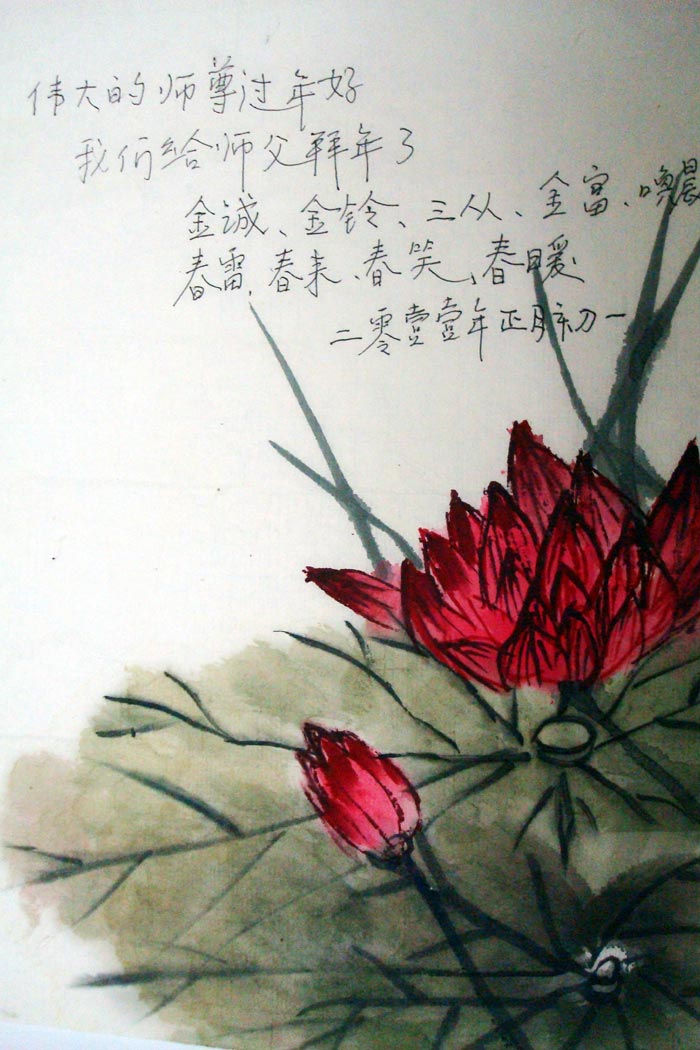 伟大的师尊过年好
我们给师父拜年了
金诚、金铃、三从、金富、唤晨
春雷、春来、春笑、春暖
二零壹壹年正月初一